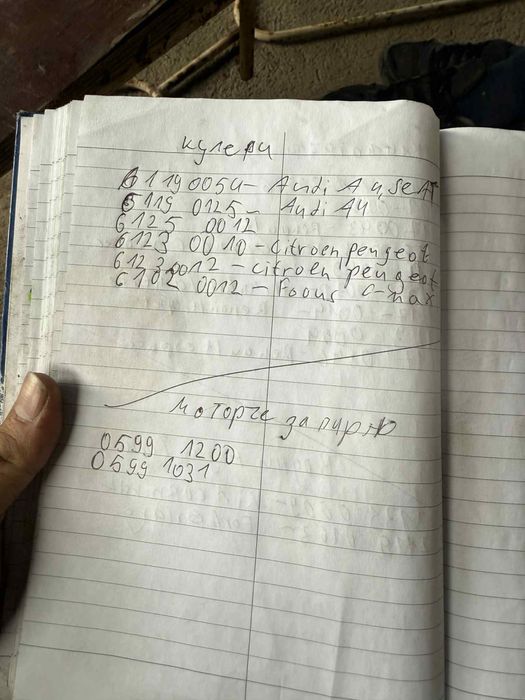 кулери
6119 0054 - Audi A4, SEAT
6119 0125 - Audi A4
6125 0012
6123 0010 - citroen peugeot
6123 0012 - citroen peugeot
6102 0012 - Focus C-max
Моторче за
0599 1200
0599 1031